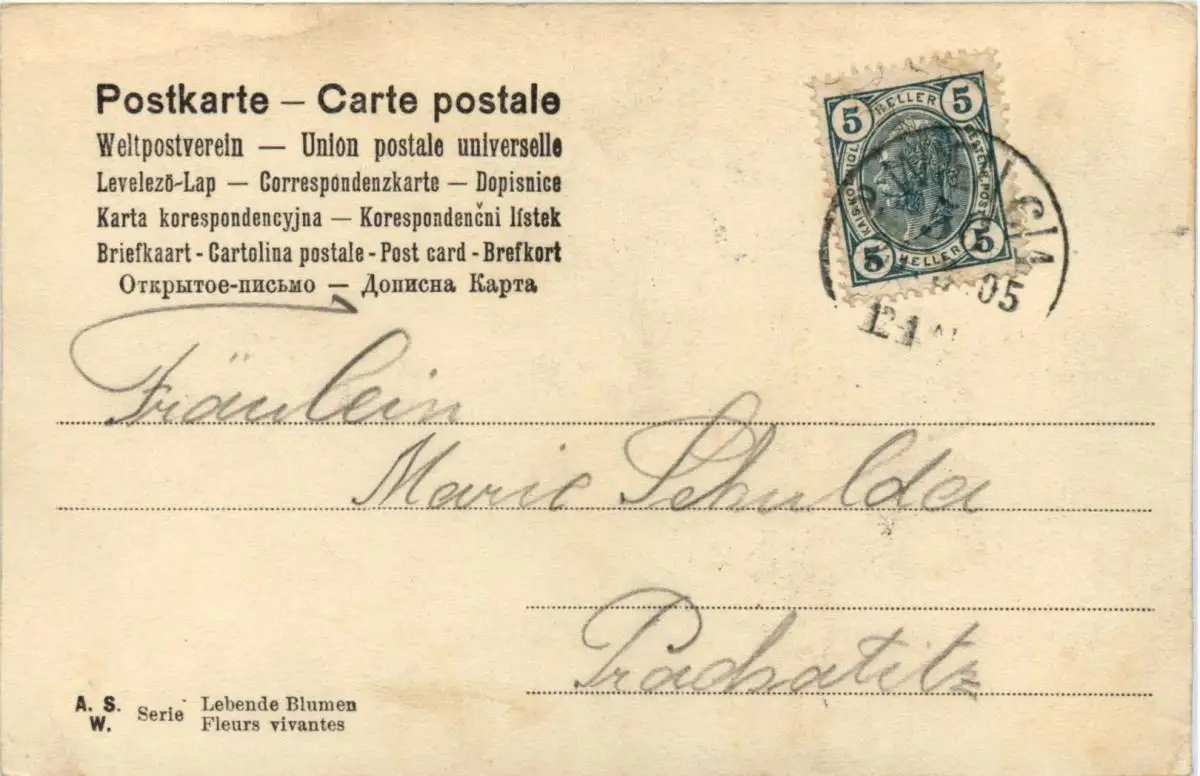 Postkarte – Carte postale
Weltpostverein — Union postale universelle
Levelező-Lap — Correspondenzkarte — Dopisnice
Karta korespondencyjna — Korespondenčni lístek
Briefkaart - Cartolina postale - Post card - Brefkort
Открытое-письмо — Дописна Карта
5 HELLER 5
5 HELLER 5
05
Fräulein
Marie Schulda
Prachatitz
A. S. W. Serie Lebende Blumen
Fleurs vivantes